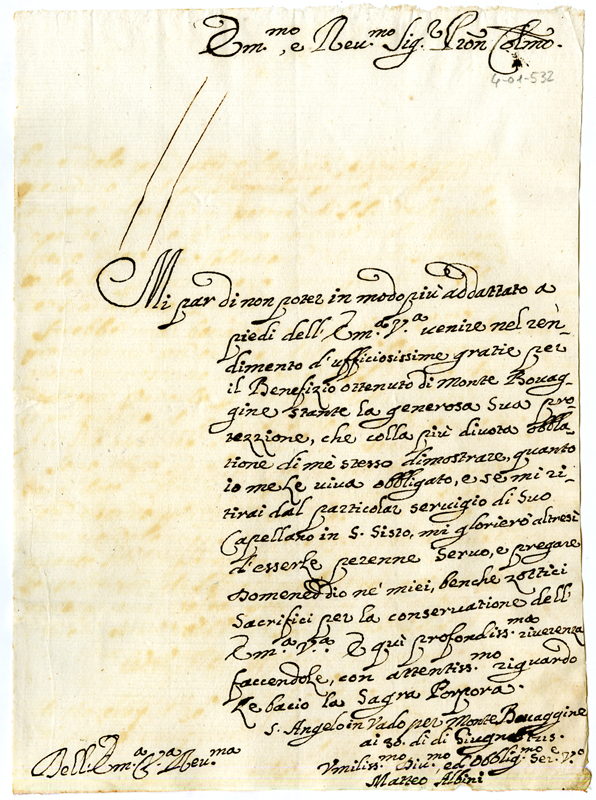 Em.mo, e Reu.mo Sig.r Pron Colmo.
4-01-532
Mi par di non poter in modo più addattato a
piedi dell'Em.a V.a venire nel ren-
dimento d'ufficiosissime gratie per
il Benefizio ottenuto di Monte Bouag-
gine stante la generosa Sua pro-
tezzione, che colla più divota obbla-
tione di mè stesso dimostrare, quanto
io me Le viva obbligato, e se mi ri-
tirai dal particolar servigio di Suo
Capellano in S. Sisto, mi glorierò altresì
d'esserle perenne Servo, e pregare
Domeneddio ne' miei, benche zottici
Sacrifici per la conservatione dell'
Em.a V.a E quì profondiss.ma riverenza
faccendole, con attentiss.mo riguardo
Le bacio la Sagra Porpora.
S. Angelo in Vado per Monte Bouaggine
ai 30. di di Giugno
Dell'Em.a V.a Reu.ma
Vmiliss.mo Diu.mo ed Obblig.mo Ser.e V.o
Matteo Albini